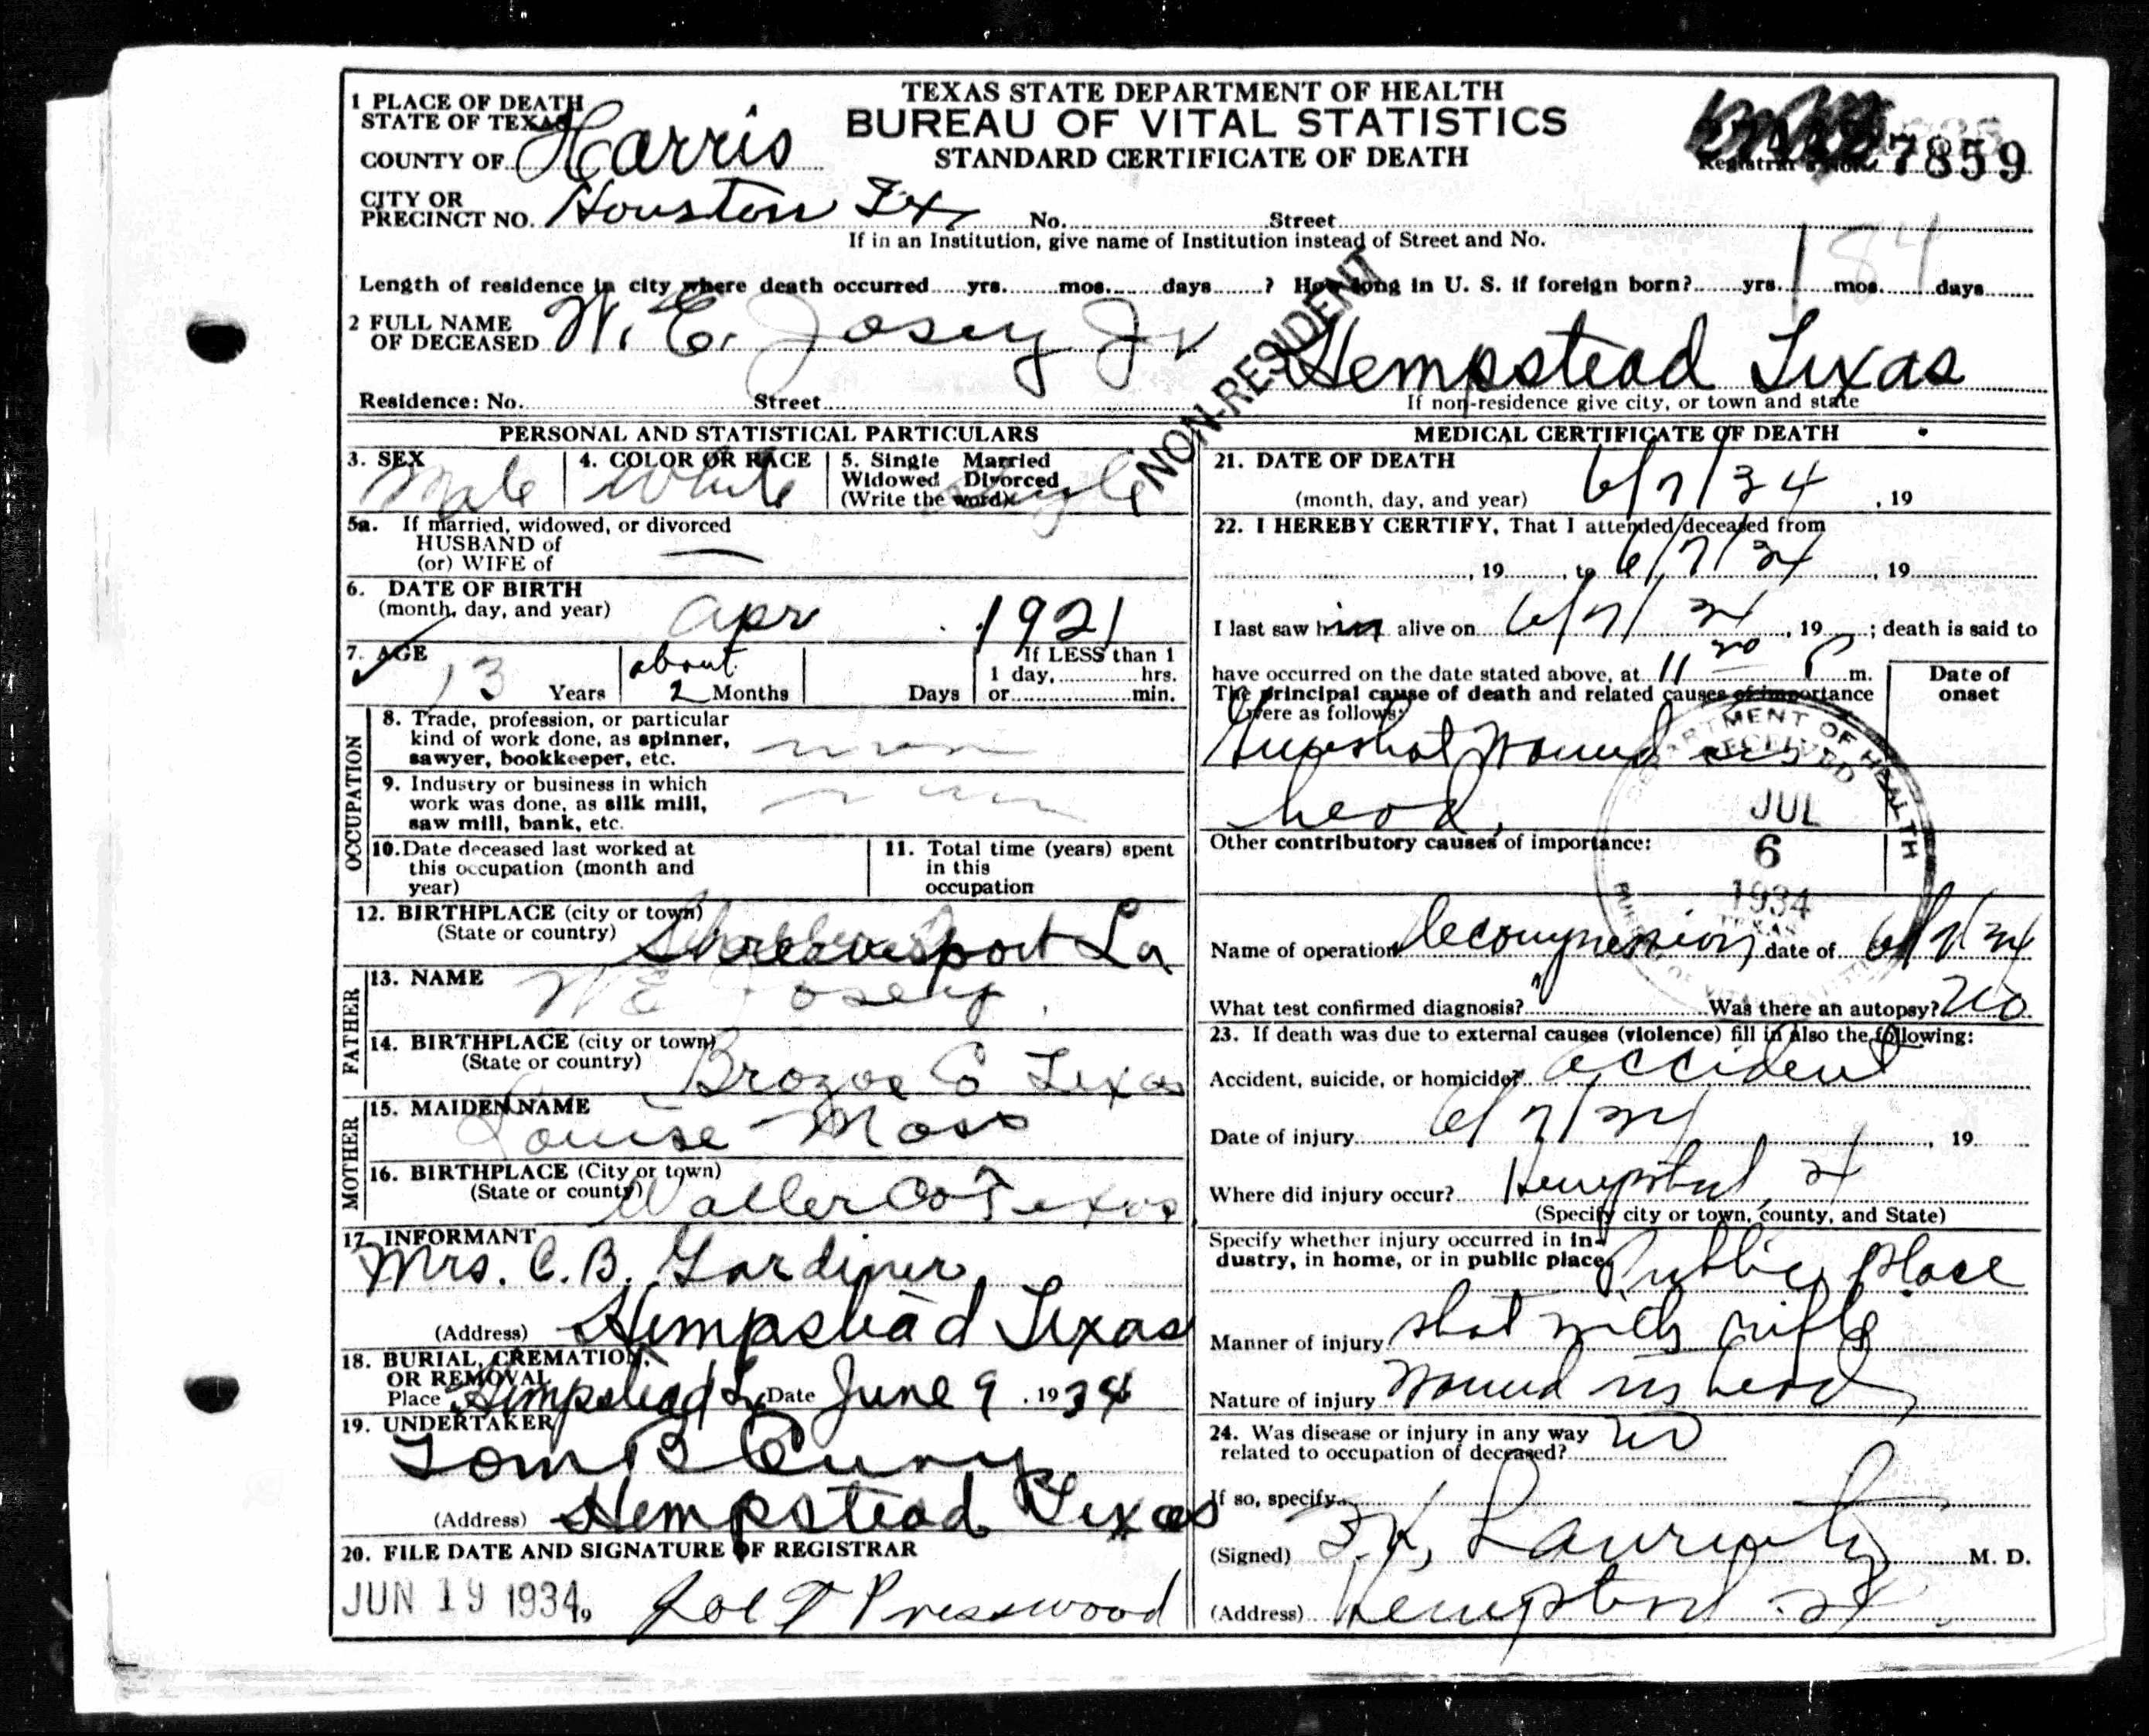 TEXAS STATE DEPARTMENT OF HEALTH
BUREAU OF VITAL STATISTICS
STANDARD CERTIFICATE OF DEATH
Registrar's No. 7859
1 PLACE OF DEATH
STATE OF TEXAS
COUNTY OF Harris
CITY OR
PRECINCT NO. Houston Tx No. Street
If in an Institution, give name of Institution instead of Street and No.
184
Length of residence in city where death occurred yrs. mos. days ? How long in U. S. if foreign born? yrs. mos. days
2 FULL NAME
OF DECEASED W. E. Josey Jr
NON-RESIDENT
Hempstead Texas
Residence: No. Street If non-residence give city, or town and state
PERSONAL AND STATISTICAL PARTICULARS
3. SEX Male
4. COLOR OR RACE White
5. Single Married
Widowed Divorced
(Write the word) Single
5a. If married, widowed, or divorced
HUSBAND of
(or) WIFE of —
6. DATE OF BIRTH
(month, day, and year) Apr 1921
7. AGE 13 Years about 2 Months Days
If LESS than 1
1 day, hrs.
or min.
OCCUPATION
8. Trade, profession, or particular
kind of work done, as spinner,
sawyer, bookkeeper, etc.
9. Industry or business in which
work was done, as silk mill,
saw mill, bank, etc.
10. Date deceased last worked at
this occupation (month and
year)
11. Total time (years) spent
in this
occupation
12. BIRTHPLACE (city or town)
(State or country) Shreevesport La
FATHER
13. NAME W E Josey
14. BIRTHPLACE (city or town)
(State or country) Brozos Co Texas
MOTHER
15. MAIDEN NAME
Louise Moss
16. BIRTHPLACE (City or town)
(State or county) Waller Co Texas
17. INFORMANT
Mrs. C. B. Gardiner
(Address) Hempstead Texas
18. BURIAL, CREMATION,
OR REMOVAL
Place Hempstead Tx Date June 9, 1934
19. UNDERTAKER
Tom B
(Address) Hempstead Texas
20. FILE DATE AND SIGNATURE OF REGISTRAR
JUN 19 1934, 19 Joe T Presswood
MEDICAL CERTIFICATE OF DEATH
21. DATE OF DEATH
(month, day, and year) 6/7/34, 19
22. I HEREBY CERTIFY, That I attended deceased from
, 19 , to 6/7/34, 19
I last saw him alive on 6/7/34, 19 ; death is said to
have occurred on the date stated above, at 11 20 P m.
The principal cause of death and related causes of importance
were as follows:
Date of
onset
Gunshot wound in
head.
DEPARTMENT OF HEALTH
RECEIVED
JUL
6
1934
TEXAS
BUREAU OF VITAL STATISTICS
Other contributory causes of importance:
Name of operation Decompression date of 6/7/34
What test confirmed diagnosis? Was there an autopsy? no
23. If death was due to external causes (violence) fill in also the following:
Accident, suicide, or homicide? accident
Date of injury 6/7/34, 19
Where did injury occur? Hempstead, Tx
(Specify city or town, county, and State)
Specify whether injury occurred in in-
dustry, in home, or in public place. Public place
Manner of injury shot with rifle
Nature of injury Wound in head
24. Was disease or injury in any way
related to occupation of deceased? no
If so, specify
(Signed) M. D.
(Address) Hempstead Tx